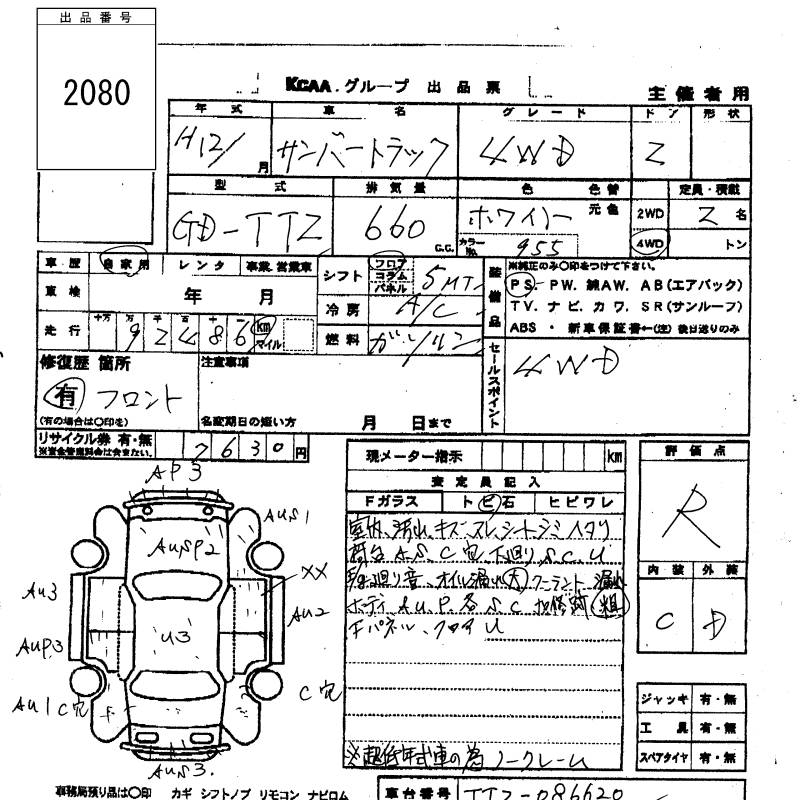 出品番号
2080
KCAA.グループ 出品票
主催者用
年式 車名 グレード ドア 形状
H12/ 月 サンバートラック 4WD 2
型式 排気量 色 色替 定員・積載
GD-TT2 660 C.C. ホワイト 元色 2WD 2 名
カラーNo. 955 4WD トン
車歴 自家用 レンタ 事業.営業車 シフト フロア コラム パネル 5MT
装備品 ※純正のみ○印をつけて下さい。
PS. PW. 純AW. AB(エアバック)
車検 年 月 冷房 A/C
TV. ナビ. カワ. SR(サンルーフ)
走行 十万 万 千 百 十 92486 km マイル 燃料 ガソリン
ABS ・ 新車保証書←(注) 後日送りのみ
修復歴 箇所 注意事項 セールスポイント 4WD
有 フロント
(有の場合は○印を) 名変期日の短い方 月 日まで
リサイクル券 有・無 7630円
※資金管理料金は含まない。
現メーター指示 km 評価点
査定員記入 R
Fガラス トビ石 ヒビワレ
室内、汚れ、キズ、スレ、シートシミ、ヘタリ
荷台 A.S.C穴 下廻り S.C.U
オイル漏れ大 クーラント漏れ
内装 外装
ボディ A.U.P.各S.C 補修跡 粗
C D
Fパネル、クロスU
※超低年式車の為 ノークレーム
AP3
AUS1
AUSP2
XX
AU3
AU2
U3
AUP3
C穴
AU1 C穴
AUS3.
ジャッキ 有・無
工具 有・無
スペアタイヤ 有・無
事務局預り品は○印 カギ シフトノブ リモコン ナビロム
車台番号 TT2-086620